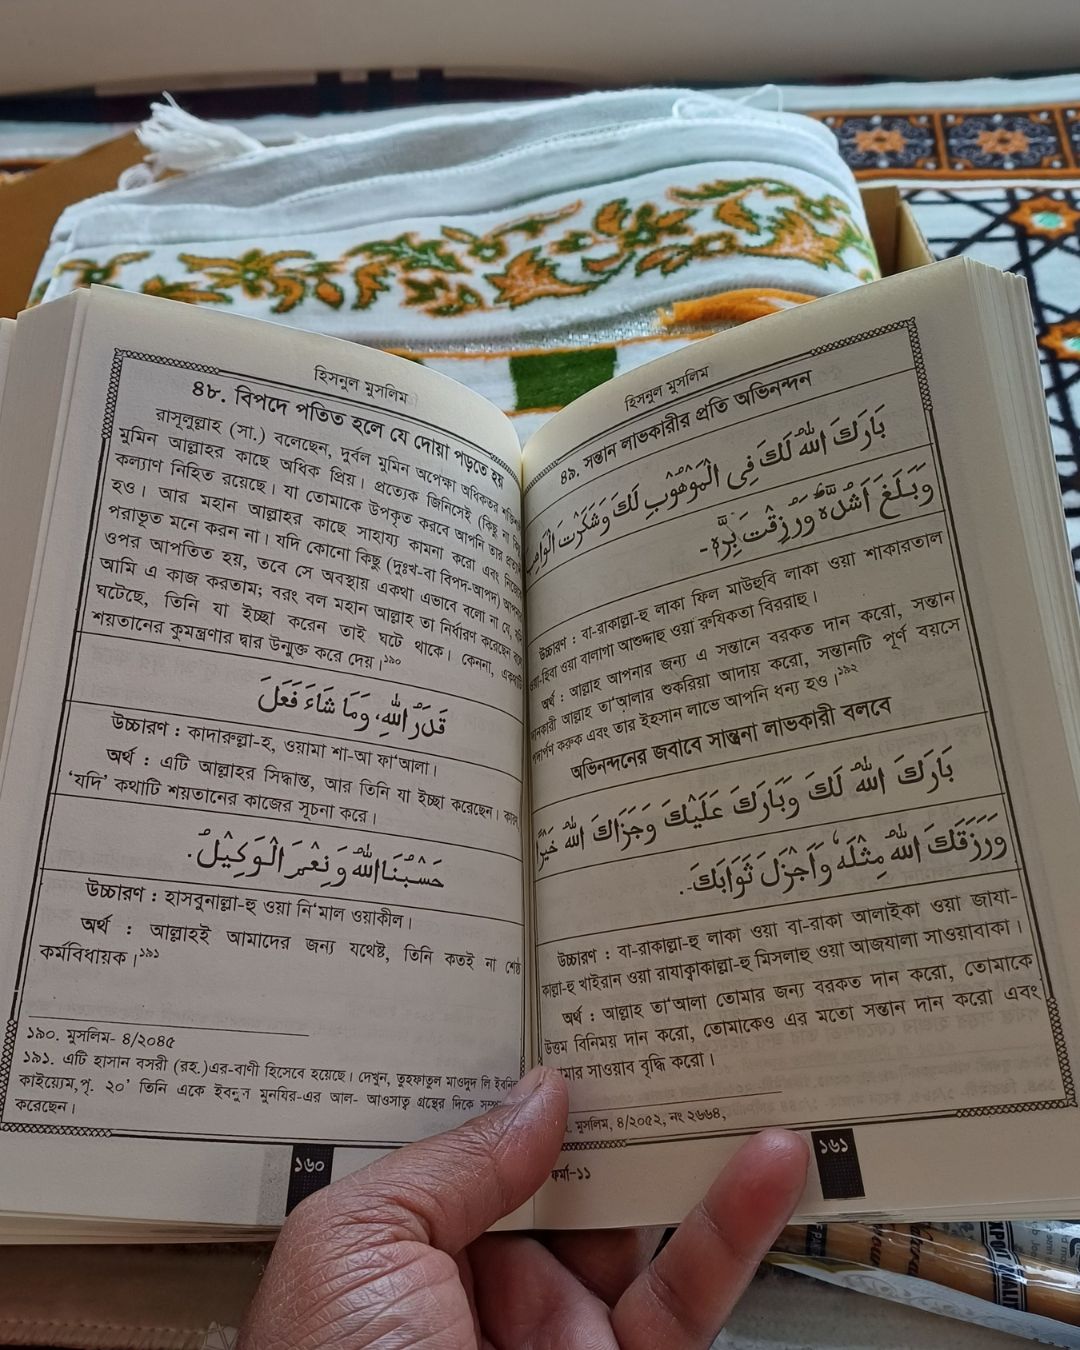 হিসনুল মুসলিম
৪৮. বিপদে পতিত হলে যে দোয়া পড়তে হয়
রাসূলুল্লাহ (সা.) বলেছেন, দুর্বল মুমিন অপেক্ষা অধিকতর
মুমিন আল্লাহর কাছে অধিক প্রিয়। প্রত্যেক জিনিসেই (কিছু না কিছু
কল্যাণ নিহিত রয়েছে। যা তোমাকে উপকৃত করবে আপনি তার
হও। আর মহান আল্লাহর কাছে সাহায্য কামনা করো এবং
পরাভূত মনে করন না। যদি কোনো কিছু (দুঃখ-বা বিপদ-আপদ)
ওপর আপতিত হয়, তবে সে অবস্থায় একথা এভাবে বলো না যে,
আমি এ কাজ করতাম; বরং বল মহান আল্লাহ তা নির্ধারণ করেছেন
ঘটেছে, তিনি যা ইচ্ছা করেন তাই ঘটে থাকে। কেননা,
শয়তানের কুমন্ত্রণার দ্বার উন্মুক্ত করে দেয়।১৯০
قَدَرُ اللهِ، وَمَا شَاءَ فَعَلَ
উচ্চারণ : কাদারুল্লা-হ, ওয়ামা শা-আ ফা'আলা।
অর্থ : এটি আল্লাহর সিদ্ধান্ত, আর তিনি যা ইচ্ছা করেছেন।
'যদি' কথাটি শয়তানের কাজের সূচনা করে।
حَسْبُنَا اللهُ وَنِعْمَ الْوَكِيْلُ.
উচ্চারণ : হাসবুনাল্লা-হু ওয়া নি'মাল ওয়াকীল।
অর্থ : আল্লাহই আমাদের জন্য যথেষ্ট, তিনি কতই না
কর্মবিধায়ক।১৯১
১৯০. মুসলিম- ৪/২০৪৫
১৯১. এটি হাসান বসরী (রহ.)এর-বাণী হিসেবে হয়েছে। দেখুন, তুহফাতুল মাওদুদ লি
কাইয়্যেম,পৃ. ২০' তিনি একে ইবনুল মুনযির-এর আল- আওসাত্ব গ্রন্থের দিকে
করেছেন।
১৬০
হিসনুল মুসলিম
৪৯. সন্তান লাভকারীর প্রতি অভিনন্দন
بَارَكَ اللهُ لَكَ فِى الْمَوْهُوْبِ لَكَ وَشَكَرْتَ
وَبَلَغَ اَشُدَّهٗ وَرُزِقْتَ بِرَّهٗ-
উচ্চারণ : বা-রাকাল্লা-হু লাকা ফিল মাউহুবি লাকা ওয়া শাকারতাল
ওয়া-হিবা ওয়া বালাগা আশুদ্দাহু ওয়া রুযিকতা বিররাহু।
অর্থ : আল্লাহ আপনার জন্য এ সন্তানে বরকত দান করো, সন্তান
দানকারী আল্লাহ তা'আলার শুকরিয়া আদায় করো, সন্তানটি পূর্ণ বয়সে
পদার্পন করুক এবং তার ইহসান লাভে আপনি ধন্য হও।১৯২
অভিনন্দনের জবাবে সান্ত্বনা লাভকারী বলবে
بَارَكَ اللهُ لَكَ وَبَارَكَ عَلَيْكَ وَجَزَاكَ اللهُ خَيْرًا
وَرَزَقَكَ اللهُ مِثْلَهٗ وَاَجْزَلَ ثَوَابَكَ..
উচ্চারণ : বা-রাকাল্লা-হু লাকা ওয়া বা-রাকা আলাইকা ওয়া জাযা-
কাল্লা-হু খাইরান ওয়া রাযাক্বাকাল্লা-হু মিসলাহু ওয়া আজযালা সাওয়াবাকা।
অর্থ : আল্লাহ তা'আলা তোমার জন্য বরকত দান করো, তোমাকে
উত্তম বিনিময় দান করো, তোমাকেও এর মতো সন্তান দান করো এবং
সাওয়াব বৃদ্ধি করো।
মুসলিম, ৪/২০৫২, নং ২৬৬৪,
ফর্মা-১১
১৬১